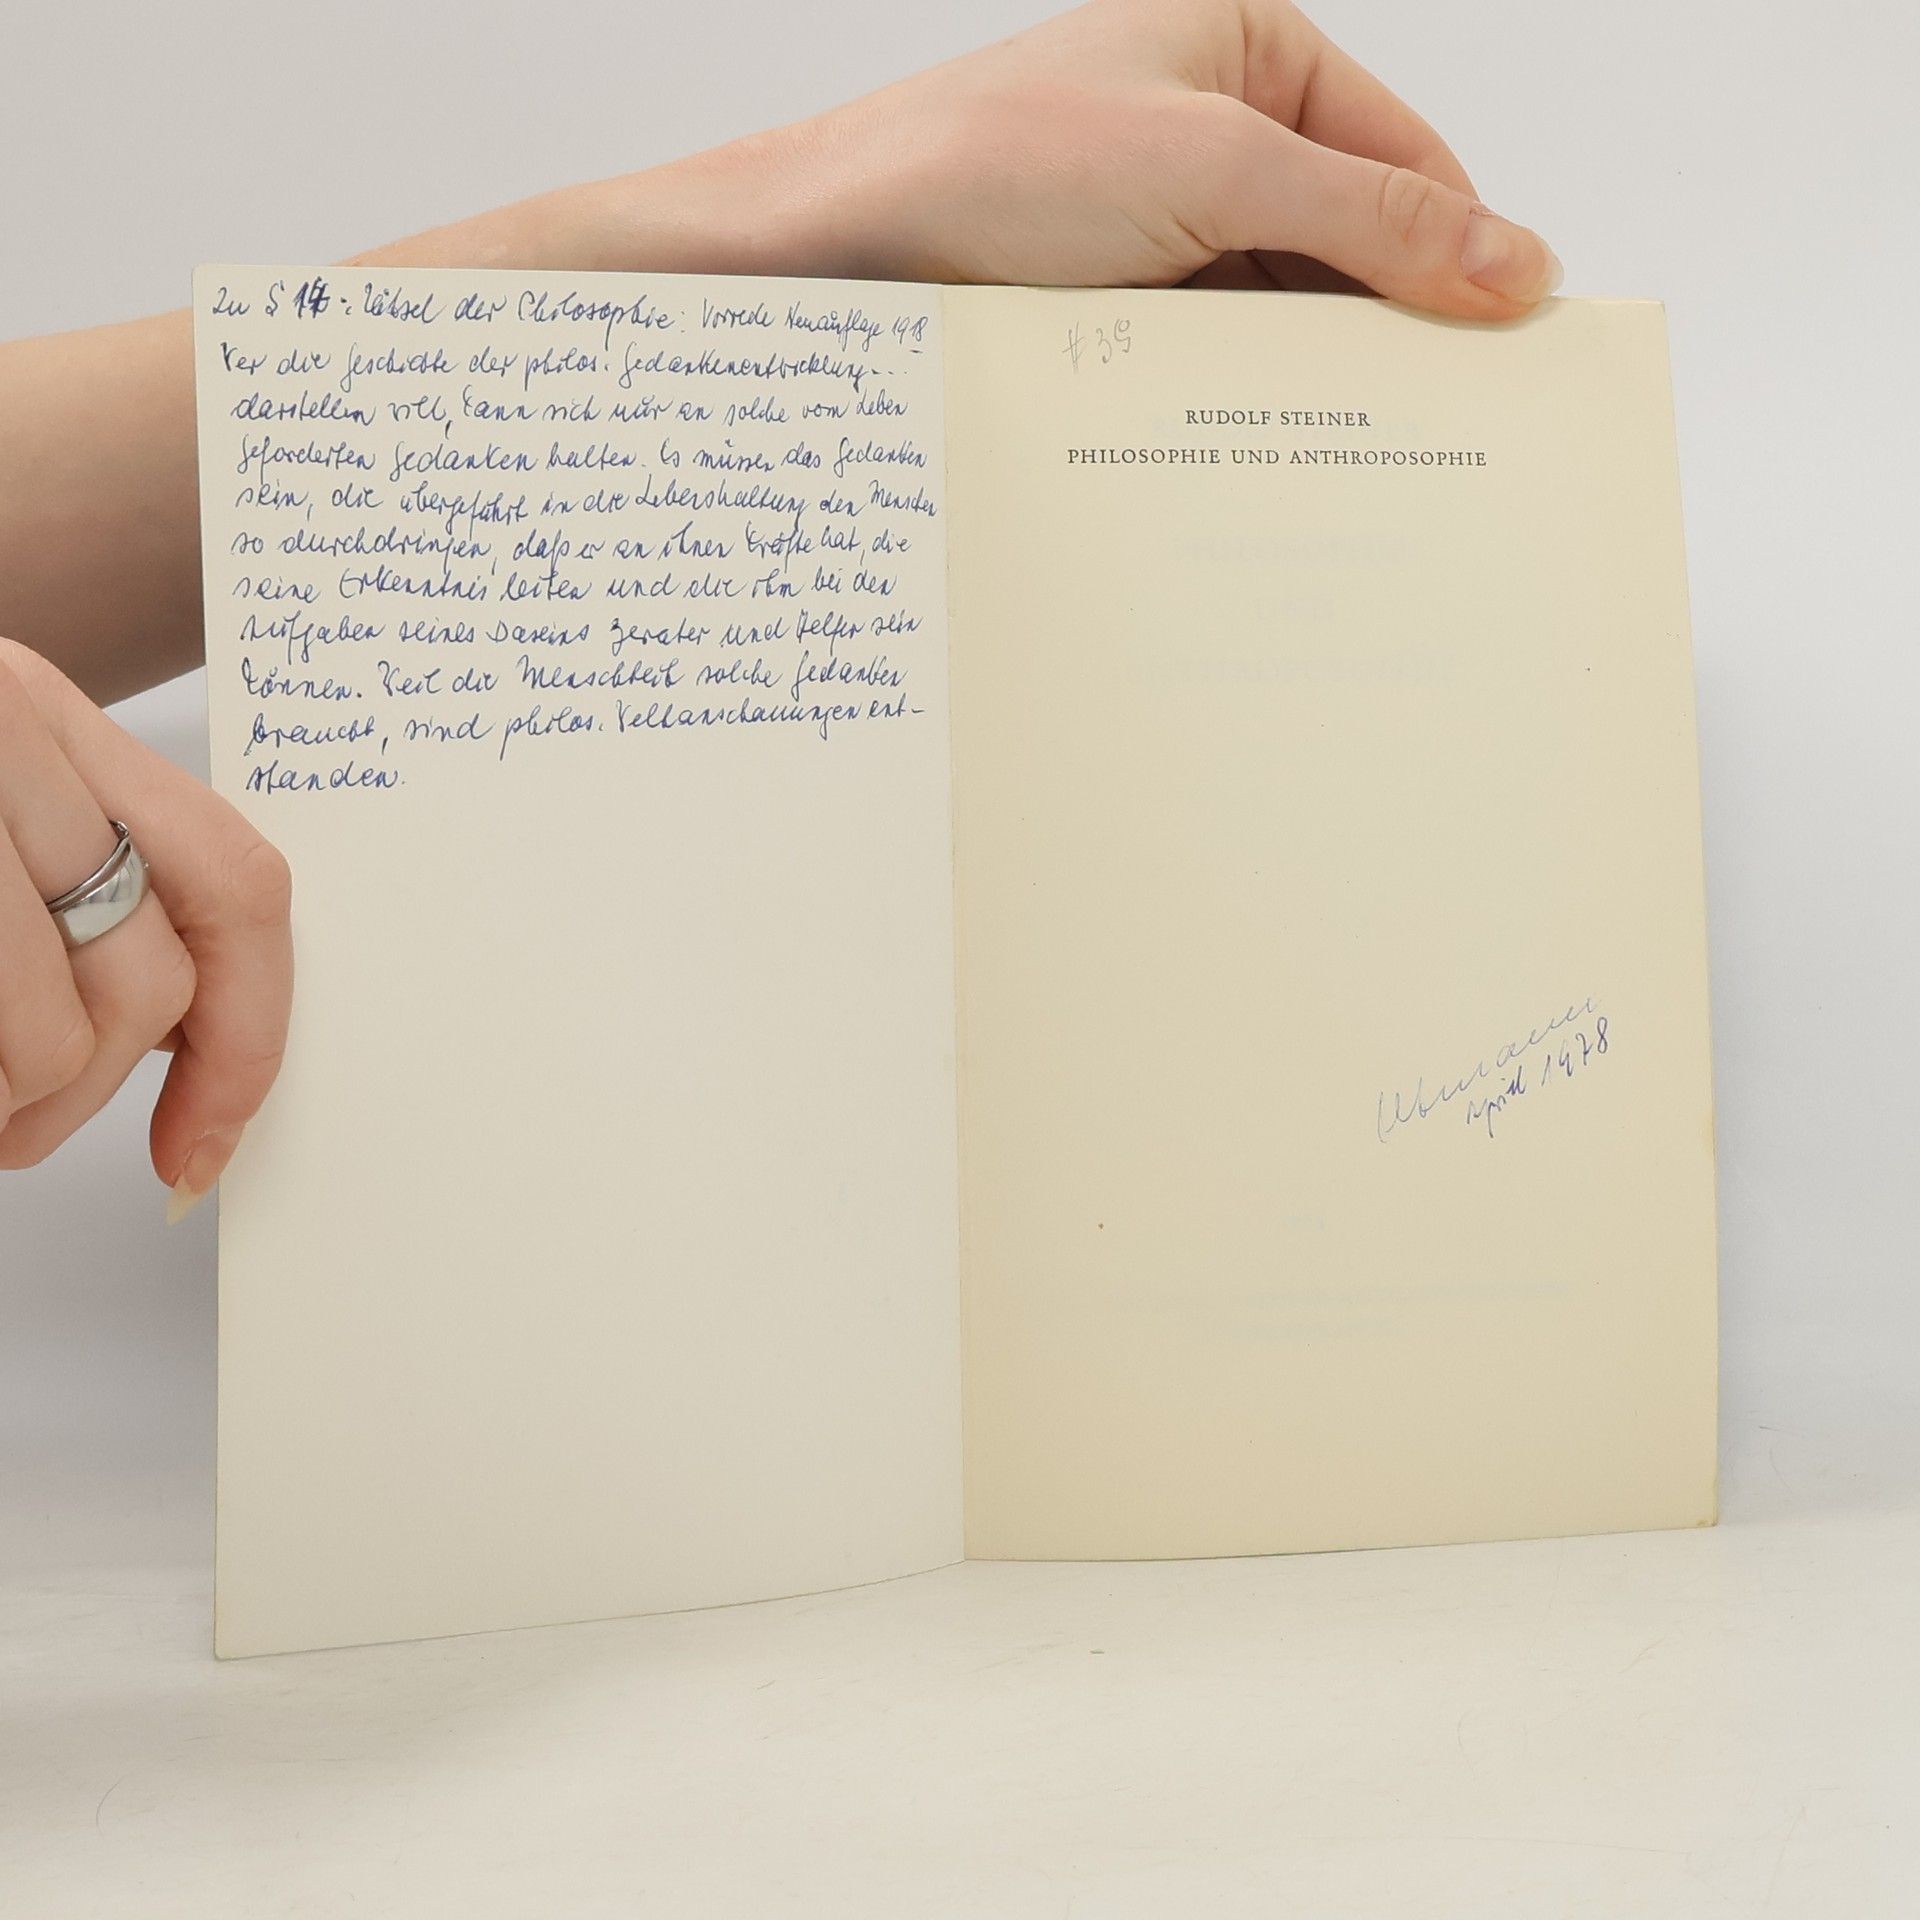 Zu S 14: Rätsel der Philosophie: Vorrede Neuauflage 1918
Wer die Geschichte der philos. Gedankenentwicklung...
darstellen will, kann sich nur an solche vom Leben
geforderten Gedanken halten. Es müssen das Gedanken
sein, die übergeführt in die Lebenshaltung den Menschen
so durchdringen, daß er an ihnen Kräfte hat, die
seine Erkenntnis leiten und die ihm bei den
Aufgaben seines Daseins Berater und Helfer sein
können. Weil die Menschheit solche Gedanken
braucht, sind philos. Weltanschauungen ent-
standen.
# 35
RUDOLF STEINER
PHILOSOPHIE UND ANTHROPOSOPHIE
April 1978